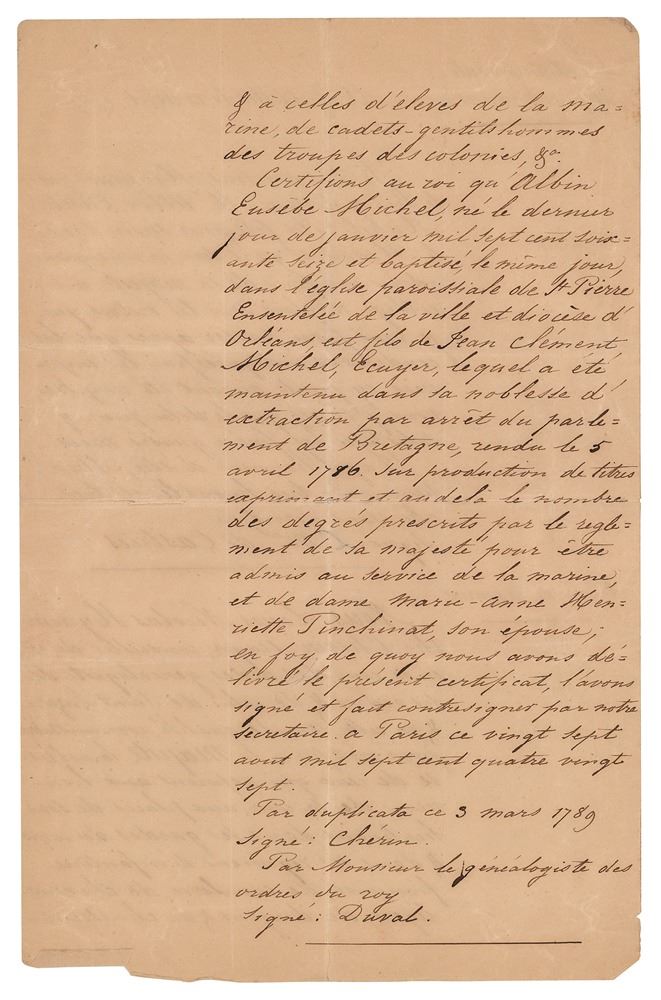 & à celles d'éleves de la ma=
rine, de cadets-gentilshommes
des troupes des colonies, &ª.
Certifions au roi qu'Albin
Eusèbe Michel, né le dernier
jour de janvier mil sept cent soix=
ante seize et baptisé le même jour,
dans l'église paroissiale de St Pierre
Ensentelée de la ville et diocèse d'
Orléans, est fils de Jean Clément
Michel, Ecuyer, lequel a été
maintenu dans sa noblesse d'
extraction par arrêt du parle=
ment de Bretagne, rendu le 5
avril 1786. sur production de titres
exprimant et audela le nombre
des degrés prescrits par le regle=
ment de sa majesté pour être
admis au service de la marine,
et de dame Marie-Anne Hen=
riette Pinchinat, son épouse;
en foy de quoy nous avons dé=
livré le présent certificat, l'avons
signé et fait contresigner par notre
secretaire. a Paris ce vingt sept
aout mil sept cent quatre vingt
sept.
Par duplicata ce 3 mars 1789
signé: Chérin.
Par Monsieur le généalogiste des
ordres du roy
signé: Duval.